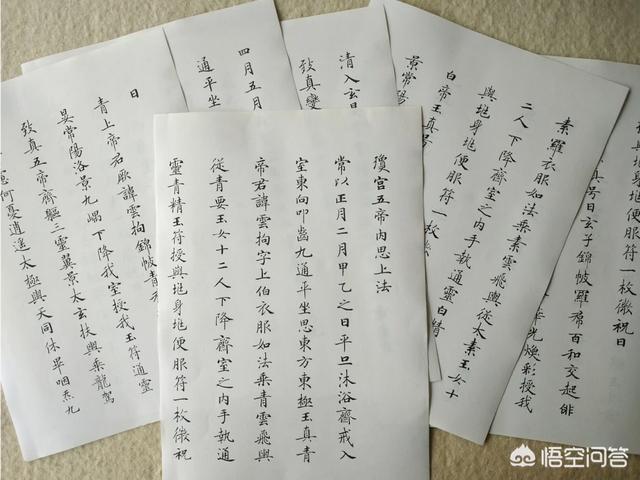 與兆身兆便服符一枚微祝曰
真号曰玄子錦帔羅帬百和交起俳
光煥彩授我
素羅衣服如法乘素雲飛輿從太素玉女十
二人下降齋室之內手執通靈白精
與兆身兆便服符一枚微
白帝玉真号
景常陽
清入玄
致真變
四月五月
通平坐
瓊宮五帝內思上法
常以正月二月甲乙之日平旦沐浴齋戒入
室東向叩齒九通平坐思東方東極玉真青
帝君諱雲拘字上伯衣服如法乘青雲飛輿
從青要玉女十二人下降齋室之內手執通
靈青精玉符授與兆身兆便服符一枚微祝
曰
青上帝君厥諱雲拘錦帔青
晏常陽洛景九嵎下降我室授我玉符通靈
致真五帝齊軀三靈翼景太玄扶輿乘龍駕
何憂逍遙太極與天同休畢咽炁九
悟空问答